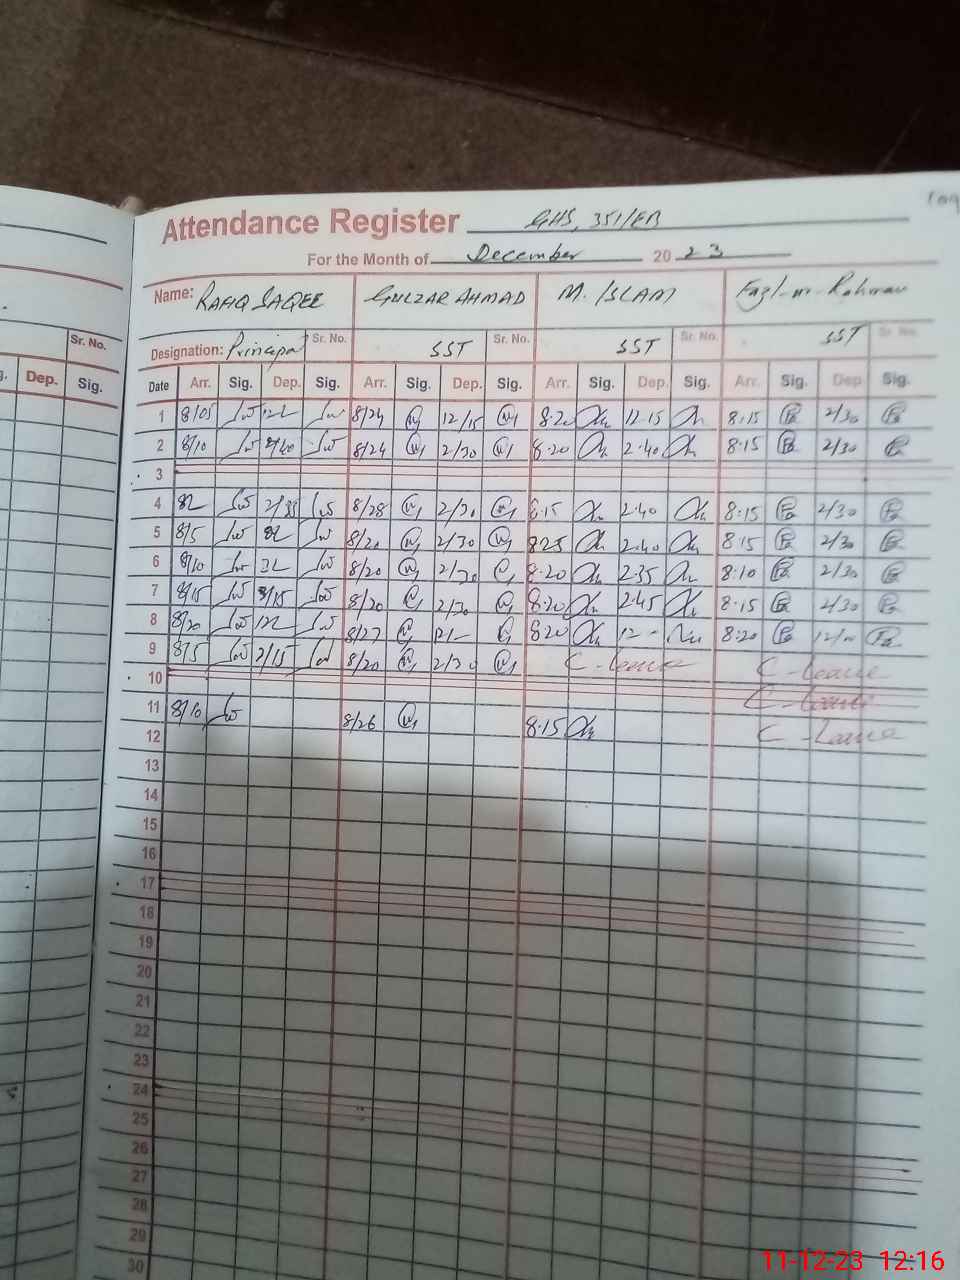 Attendance Register GHS, 351/EB
For the Month of December 2023
Name: RAFIQ SAQEE GULZAR AHMAD M. ISLAM Fazl-ur-Rahman
Sr. No. Designation: Principal Sr. No. SST Sr. No. SST Sr. No. SST Sr. No.
Dep. Sig. Date Arr. Sig. Dep. Sig. Arr. Sig. Dep. Sig. Arr. Sig. Dep. Sig. Arr. Sig. Dep. Sig.
1 8/05 8/24 12/15 8.20 12.15 8.15 2/30
2 8/10 2/40 8/24 2/30 8.20 2.40 8.15 2/30
3
4 8/28 2/30 8.15 2.40 8.15 2/30
5 8/5 8/20 2/30 825 2.40 8.15 2/30
6 8/10 8/20 2/30 8.20 2.35 8.10 2/30
7 8/15 8/20 2/30 8.20 2.45 8.15 2/30
8 8/20 8/27 820 12 - 8.20
9 8/5 2/15 8/20 2/30 C-leave C-leave
10 C-leave
11 8/10 8/26 8.15 C-Leave
12
13
14
15
16
17
18
19
20
21
22
23
24
25
26
27
28
29
30
11-12-23 12:16